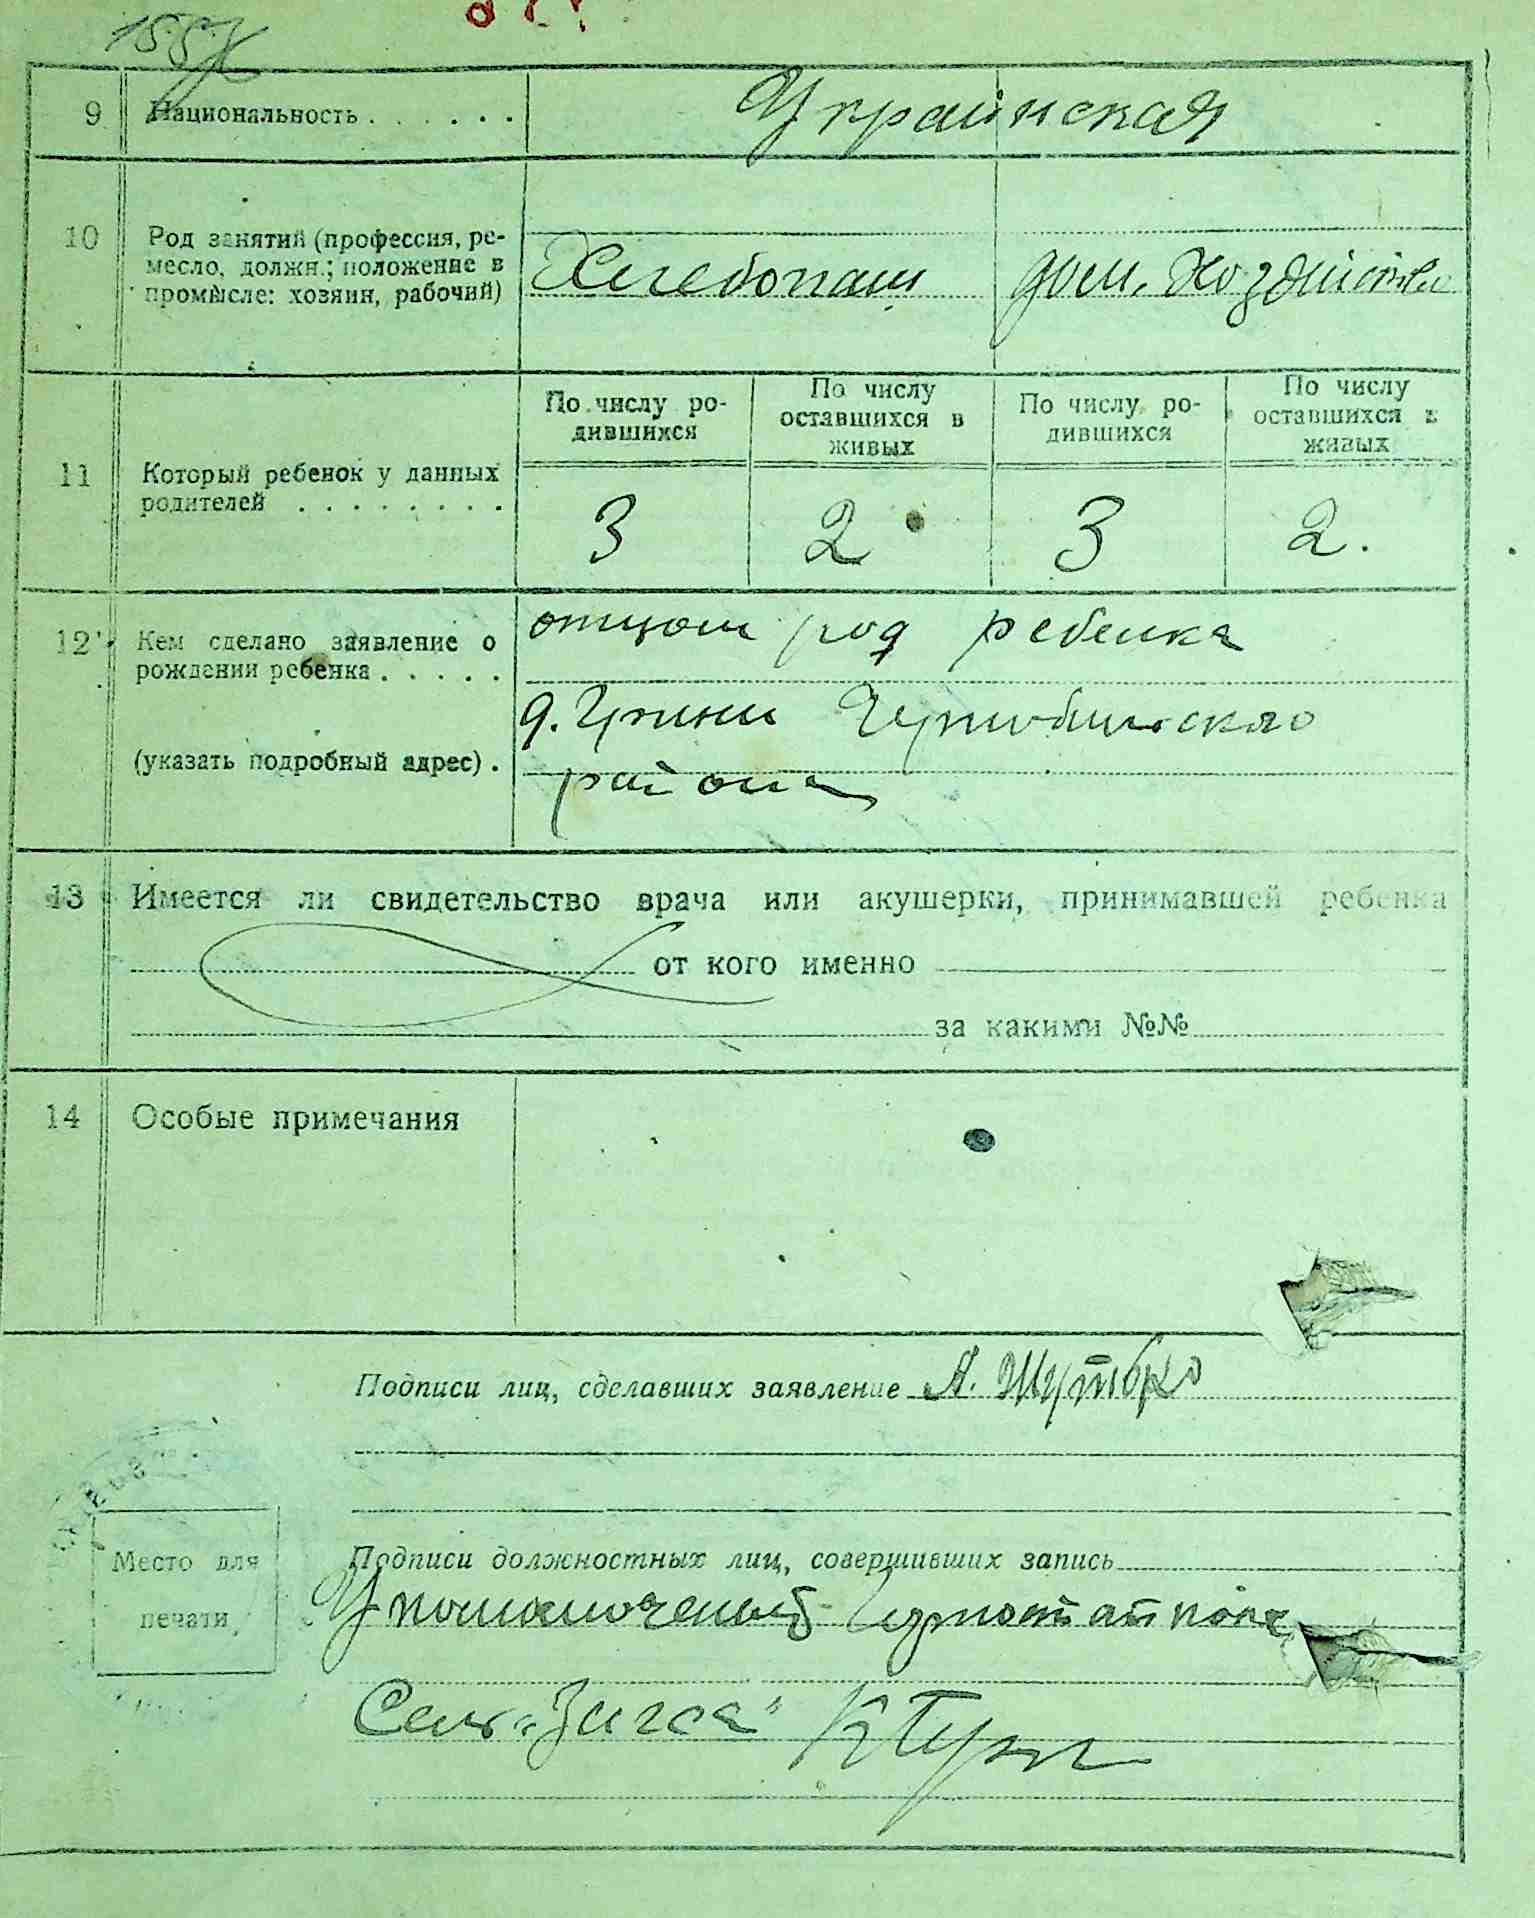 9 Национальность . . . . . . Украинская
10 Род занятий (профессия, ре-
месло, должн.; положение в
промысле: хозяин, рабочий)
Хлебопаш дом. хозяйство
По числу ро-
дившихся
По числу
оставшихся в
живых
По числу ро-
дившихся
По числу
оставшихся в
живых
11 Который ребенок у данных
родителей . . . . . . . .
3 2 3 2.
12 Кем сделано заявление о
рождении ребенка . . . . .
(указать подробный адрес) .
отцом род ребенка
д.
района
13 Имеется ли свидетельство врача или акушерки, принимавшей ребенка
от кого именно
за какими №№
14 Особые примечания
Подписи лиц, сделавших заявление А. Шутько
Место для
печати
Подписи должностных лиц, совершивших запись
Сель ЗАГСа